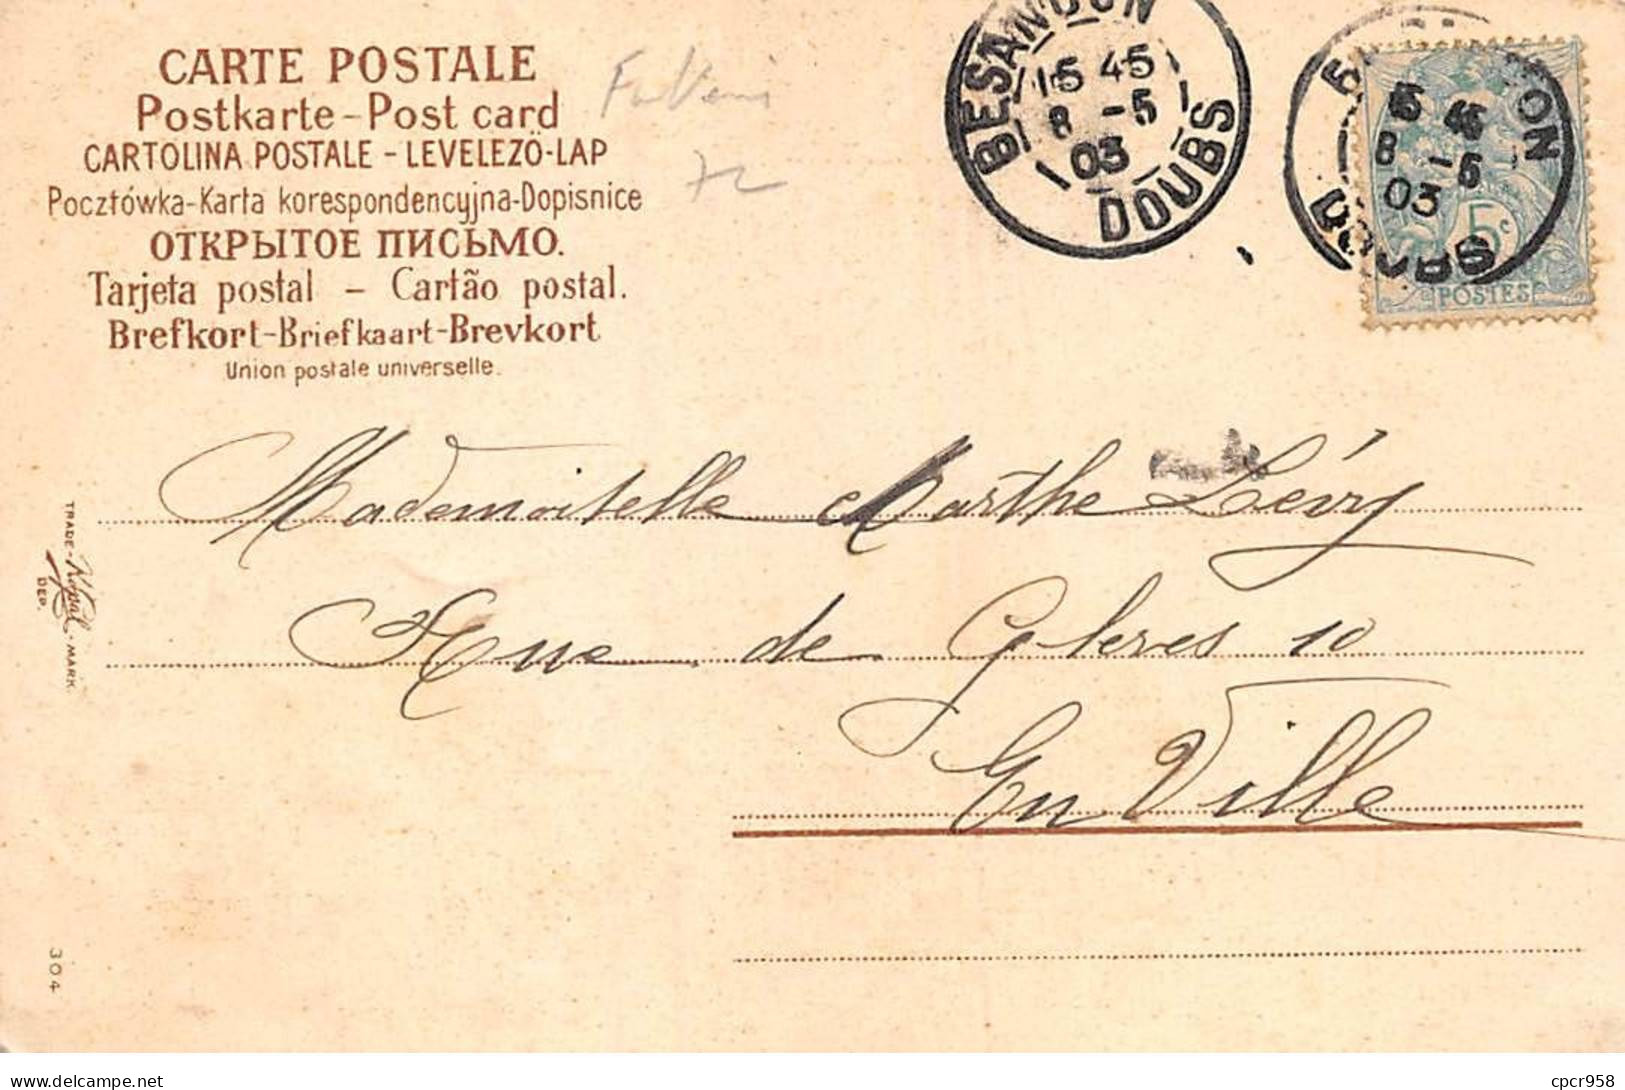 CARTE POSTALE
Postkarte-Post card
CARTOLINA POSTALE - LEVELEZÖ-LAP
Pocztówka-Karta korespondencyjna-Dopisnice
ОТКРЫТОЕ ПИСЬМО.
Tarjeta postal - Cartão postal.
Brefkort-Briefkaart-Brevkort
Union postale universelle.
72
BESANÇON
15 45
8 -5
03
DOUBS
15 45
8 -5
03
DOUBS
5c
POSTES
Mademoiselle Marthe Lévy
Rue de Gleres 10
En Ville
TRADE - MARK
DEP.
304
cpcr958